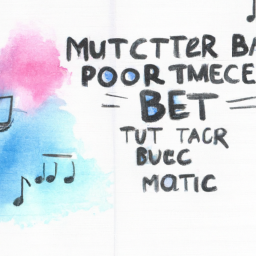 MUTCTTER BA
POOR TMECE
BET
TUT TACR
BUEC
MATIC